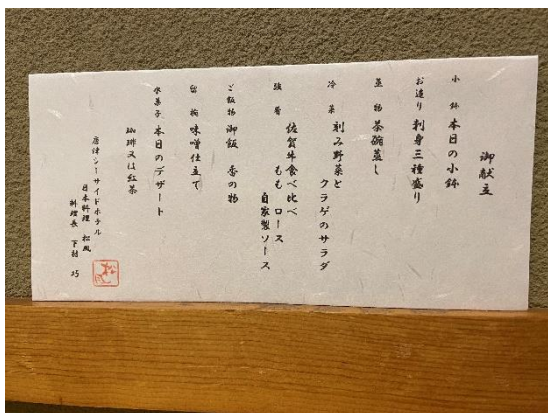 御献立
小鉢 本日の小鉢
お造り 刺身三種盛り
蒸物 茶碗蒸し
冷菜 刻み野菜と
クラゲのサラダ
強肴 佐賀牛食べ比べ
もも ロース
自家製ソース
ご飯物 御飯 香の物
留椀 味噌仕立て
水菓子 本日のデザート
珈琲又は紅茶
唐津シーサイドホテル
日本料理 松風
料理長 下村 巧